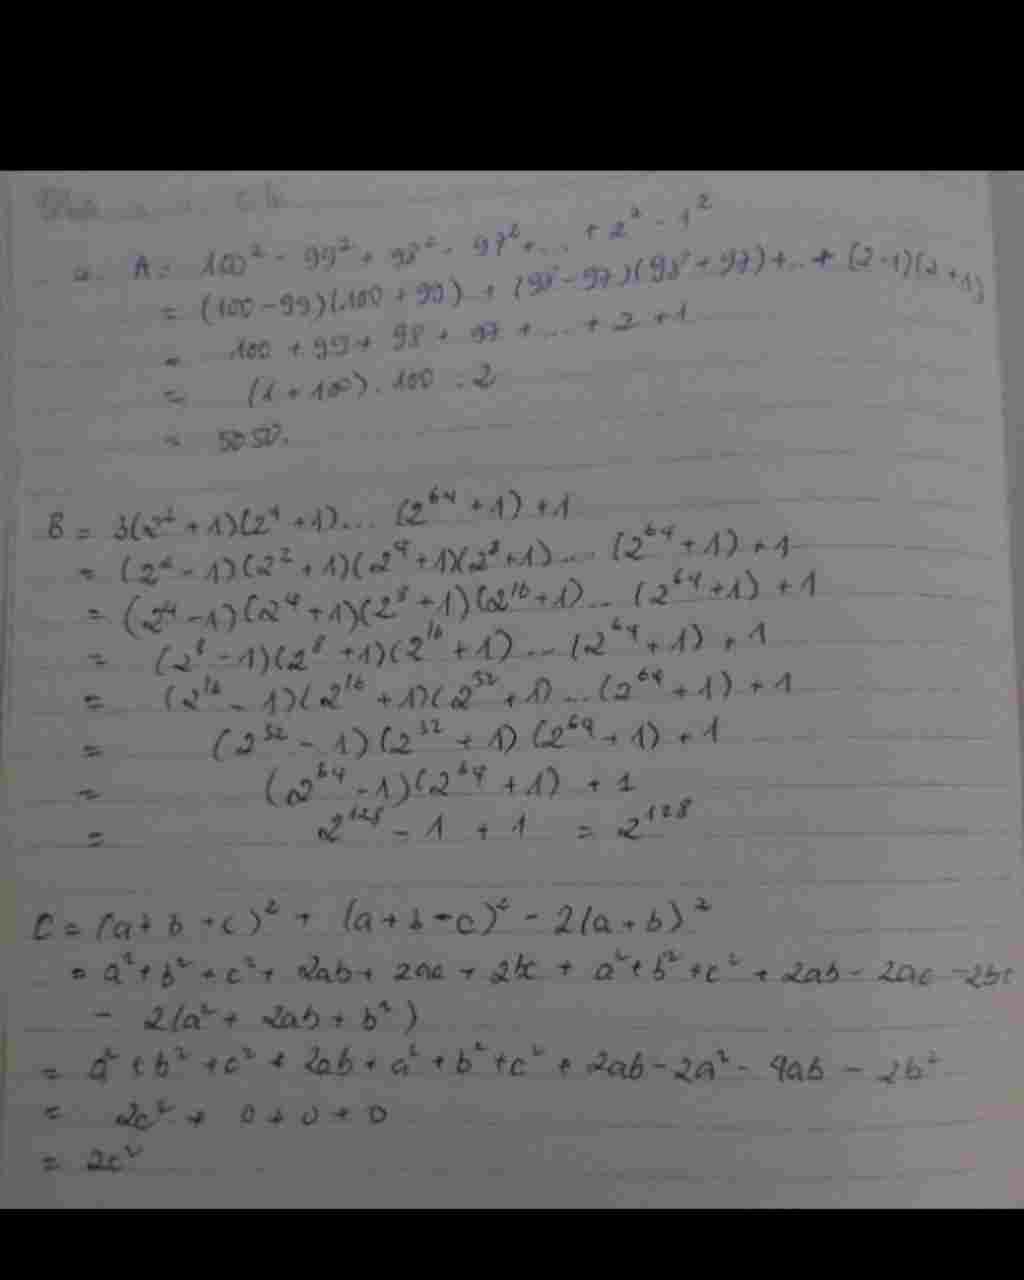 a. A = 100² - 99² + 98² - 97² + ... + 2² - 1²
= (100 - 99)(100 + 99) + (98 - 97)(98 + 97) + ... + (2 - 1)(2 + 1)
= 100 + 99 + 98 + 97 + ... + 2 + 1
= (1 + 100) . 100 : 2
= 5050.
B = 3(2² + 1)(2⁴ + 1) ... (2⁶⁴ + 1) + 1
= (2² - 1)(2² + 1)(2⁴ + 1)(2⁸ + 1) ... (2⁶⁴ + 1) + 1
= (2⁴ - 1)(2⁴ + 1)(2⁸ + 1)(2¹⁶ + 1) ... (2⁶⁴ + 1) + 1
= (2⁸ - 1)(2⁸ + 1)(2¹⁶ + 1) ... (2⁶⁴ + 1) + 1
= (2¹⁶ - 1)(2¹⁶ + 1)(2³² + 1) ... (2⁶⁴ + 1) + 1
= (2³² - 1)(2³² + 1)(2⁶⁴ + 1) + 1
= (2⁶⁴ - 1)(2⁶⁴ + 1) + 1
= 2¹²⁸ - 1 + 1 = 2¹²⁸
C = (a + b + c)² + (a + b - c)² - 2(a + b)²
= a² + b² + c² + 2ab + 2ac + 2bc + a² + b² + c² + 2ab - 2ac - 2bc
- 2(a² + 2ab + b²)
= a² + b² + c² + 2ab + a² + b² + c² + 2ab - 2a² - 4ab - 2b²
= 2c² + 0 + 0 + 0
= 2c²